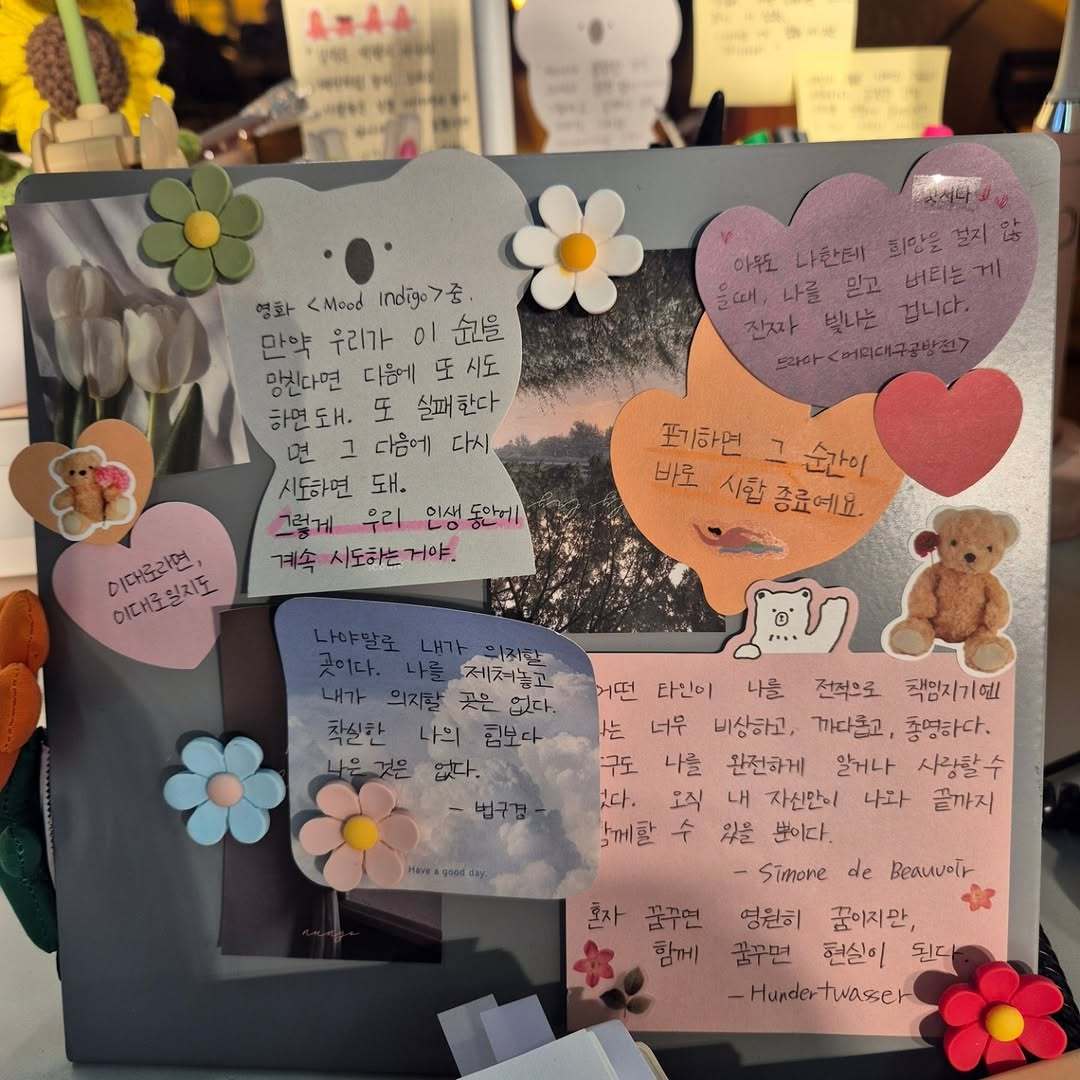 영화 <Mood Indigo> 중.
만약 우리가 이 순간을
망친다면 다음에 또 시도
하면 돼. 또 실패한다
면 그 다음에 다시
시도하면 돼.
그렇게 우리 인생 동안에
계속 시도하는거야.
아무도 나한테 희망을 걸지 않
을때, 나를 믿고 버티는 게
진짜 빛나는 겁니다.
드라마
포기하면 그 순간이
바로 시합 종료예요.
이대로라면,
이대로일지도
나야말로 내가 의지할
곳이다. 나를 제쳐놓고
내가 의지할 곳은 없다.
착실한 나의 힘보다
나은 것은 없다.
- 법구경 -
Have a good day.
타인이 나를 전적으로 책임지기엔
너무 비상하고, 까다롭고, 총명하다.
나를 완전하게 알거나 사랑할 수
오직 내 자신만이 나와 끝까지
함께할 수 있을 뿐이다.
- Simone de Beauvoir
혼자 꿈꾸면 영원히 꿈이지만,
함께 꿈꾸면 현실이 된다.
- Hundertwasser